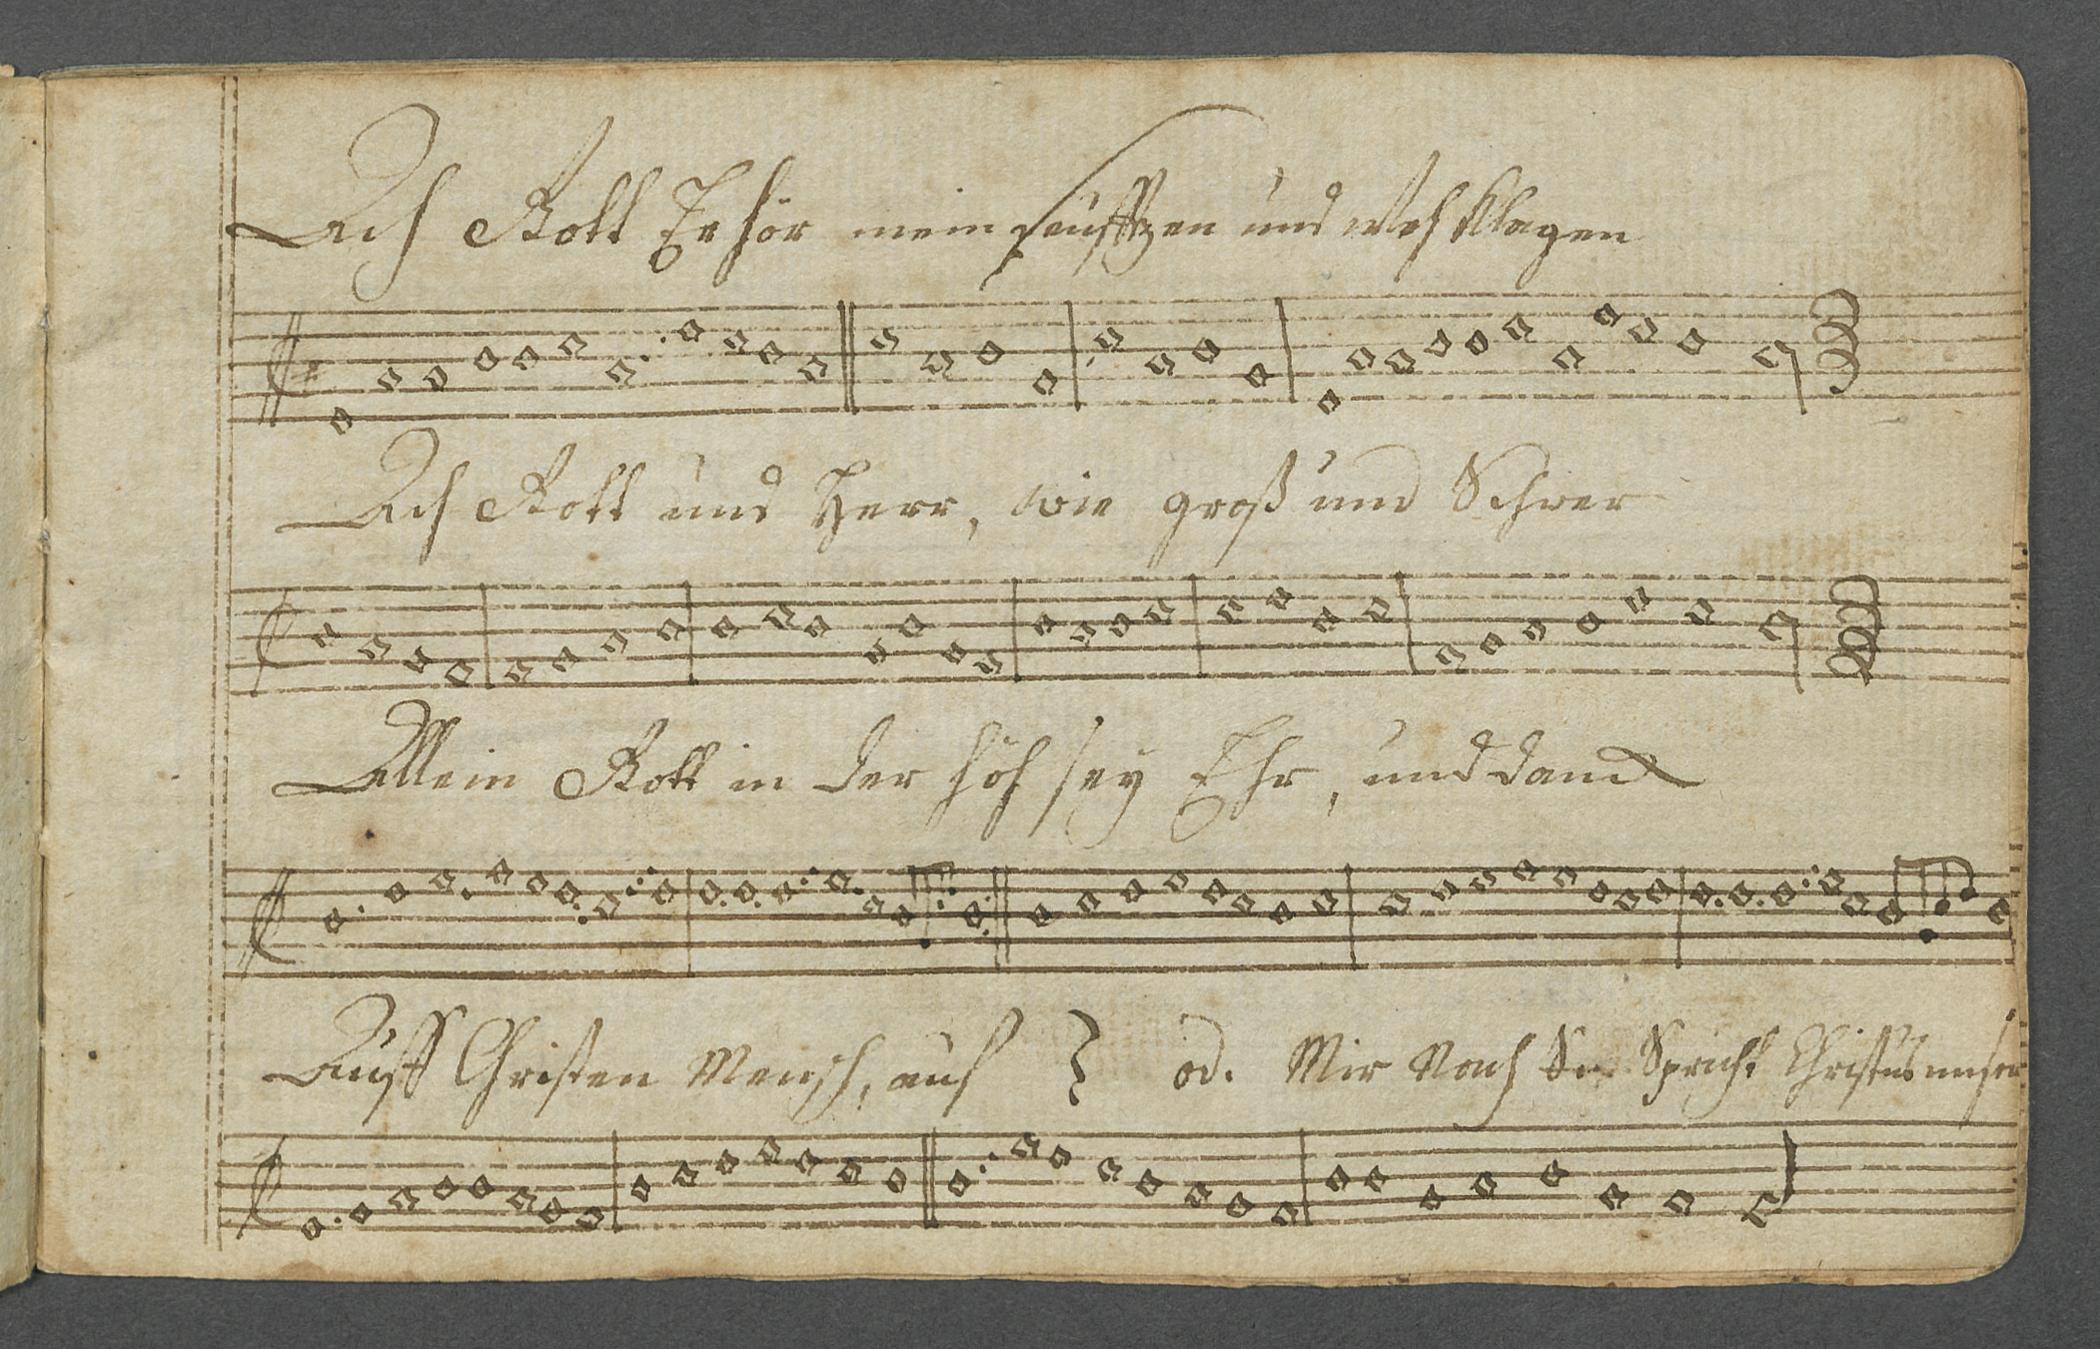 Ach Gott Erhör mein seüfftzen und weh klagen
Ach Gott und Herr, wie groß und Schwer
Allein Gott in der höh sey Ehr, und danck
Auff Christen Mensch, auf od. Mir Nach Spricht Christus unser